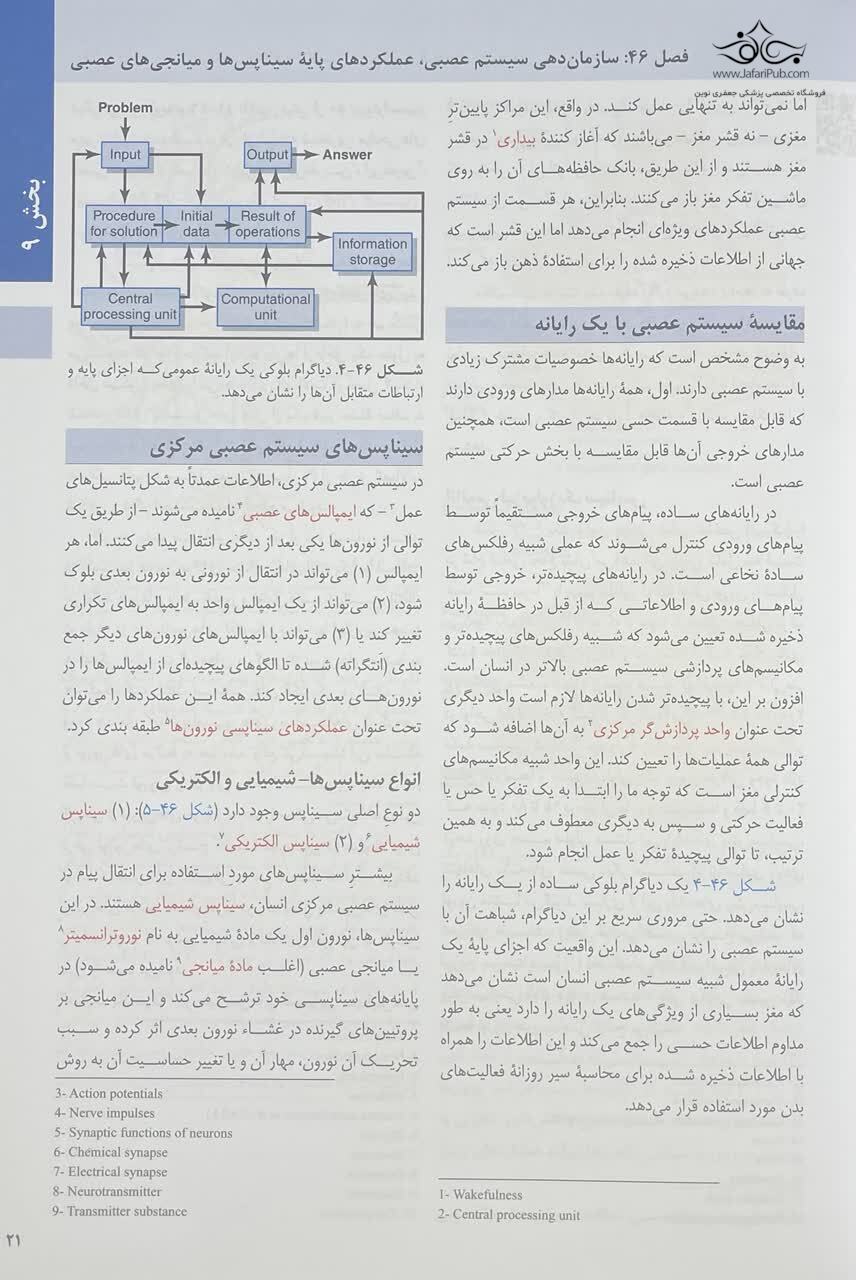 فصل ۴۶: سازمان‌دهی سیستم عصبی، عملکردهای پایهٔ سیناپس‌ها و میانجی‌های عصبی
www.JafariPub.com
فروشگاه تخصصی پزشکی جعفری نوین
بخش ۹
اما نمی‌تواند به تنهایی عمل کنـد. در واقع، این مراکز پایین‌ترِ
مغزی – نه قشر مغز – می‌باشند که آغاز کنندهٔ بیداری۱ در قشر
مغز هستند و از این طریق، بانک حافظه‌های آن را به روی
ماشین تفکر مغز باز می‌کنند. بنابراین، هر قسمت از سیستم
عصبی عملکردهای ویژه‌ای انجام می‌دهد اما این قشر است که
جهانی از اطلاعات ذخیره شده را برای استفادهٔ ذهن باز می‌کند.
مقایسهٔ سیستم عصبی با یک رایانه
به وضوح مشخص است که رایانه‌ها خصوصیات مشترک زیادی
با سیستم عصبی دارند. اول، همهٔ رایانه‌ها مدارهای ورودی دارند
که قابل مقایسه با قسمت حسی سیستم عصبی است، همچنین
مدارهای خروجی آن‌ها قابل مقایسه با بخش حرکتی سیستم
عصبی است.
در رایانه‌های ساده، پیام‌های خروجی مستقیماً توسط
پیام‌های ورودی کنترل می‌شوند که عملی شبیه رفلکس‌های
سادهٔ نخاعی است. در رایانه‌های پیچیده‌تر، خروجی توسط
پیام‌های ورودی و اطلاعاتی که از قبل در حافظهٔ رایانه
ذخیره شده تعیین می‌شود که شبیه رفلکس‌های پیچیده‌تر و
مکانیسم‌های پردازشی سیستم عصبی بالاتر در انسان است.
افزون بر این، با پیچیده‌تر شدن رایانه‌ها لازم است واحد دیگری
تحت عنوان واحد پردازش‌گر مرکزی۲ به آن‌ها اضافه شود که
توالی همهٔ عملیات‌ها را تعیین کند. این واحد شبیه مکانیسم‌های
کنترلی مغز است که توجه ما را ابتدا به یک تفکر یا حس یا
فعالیت حرکتی و سپس به دیگری معطوف می‌کند و به همین
ترتیب، تا توالی پیچیدهٔ تفکر یا عمل انجام شود.
شکل ۴۶-۴ یک دیاگرام بلوکی ساده از یک رایانه را
نشان می‌دهد. حتی مروری سریع بر این دیاگرام، شباهت آن با
سیستم عصبی را نشان می‌دهد. این واقعیت که اجزای پایهٔ یک
رایانهٔ معمول شبیه سیستم عصبی انسان است نشان می‌دهد
که مغز بسیاری از ویژگی‌های یک رایانه را دارد یعنی به طور
مداوم اطلاعات حسی را جمع می‌کند و این اطلاعات را همراه
با اطلاعات ذخیره شده برای محاسبهٔ سیر روزانهٔ فعالیت‌های
بدن مورد استفاده قرار می‌دهد.
1- Wakefulness
2- Central processing unit
Problem
Input
Output
Answer
Procedure
for solution
Initial
data
Result of
operations
Information
storage
Central
processing unit
Computational
unit
شکل ۴۶-۴. دیاگرام بلوکی یک رایانهٔ عمومی‌که اجزای پایه و
ارتباطات متقابل آن‌ها را نشان می‌دهد.
سیناپس‌های سیستم عصبی مرکزی
در سیستم عصبی مرکزی، اطلاعات عمدتاً به شکل پتانسیل‌های
عمل۳ – که ایمپالس‌های عصبی۴ نامیده می‌شوند – از طریق یک
توالی از نورون‌ها یکی بعد از دیگری انتقال پیدا می‌کنند. اما، هر
ایمپالس (۱) می‌تواند در انتقال از نورونی به نورون بعدی بلوک
شود، (۲) می‌تواند از یک ایمپالس واحد به ایمپالس‌های تکراری
تغییر کند یا (۳) می‌تواند با ایمپالس‌های نورون‌های دیگر جمع
بندی (اَنتگراته) شده تا الگوهای پیچیده‌ای از ایمپالس‌ها را در
نورون‌های بعدی ایجاد کند. همهٔ این عملکردها را می‌توان
تحت عنوان عملکردهای سیناپسی نورون‌ها۵ طبقه بندی کرد.
انواع سیناپس‌ها– شیمیایی و الکتریکی
دو نوع اصلی سیناپس وجود دارد (شکل ۴۶-۵): (۱) سیناپس
شیمیایی۶ و (۲) سیناپس الکتریکی۷.
بیشترِ سیناپس‌های موردِ استفاده برای انتقال پیام در
سیستم عصبی مرکزی انسان، سیناپس شیمیایی هستند. در این
سیناپس‌ها، نورون اول یک مادهٔ شیمیایی به نام نوروترانسمیتر۸
یا میانجی عصبی (اغلب مادهٔ میانجی۹ نامیده می‌شود) در
پایانه‌های سیناپسی خود ترشح می‌کند و این میانجی بر
پروتیین‌های گیرنده در غشاء نورون بعدی اثر کرده و سبب
تحریک آن نورون، مهار آن و یا تغییر حساسیت آن به روش
3- Action potentials
4- Nerve impulses
5- Synaptic functions of neurons
6- Chemical synapse
7- Electrical synapse
8- Neurotransmitter
9- Transmitter substance
۲۱